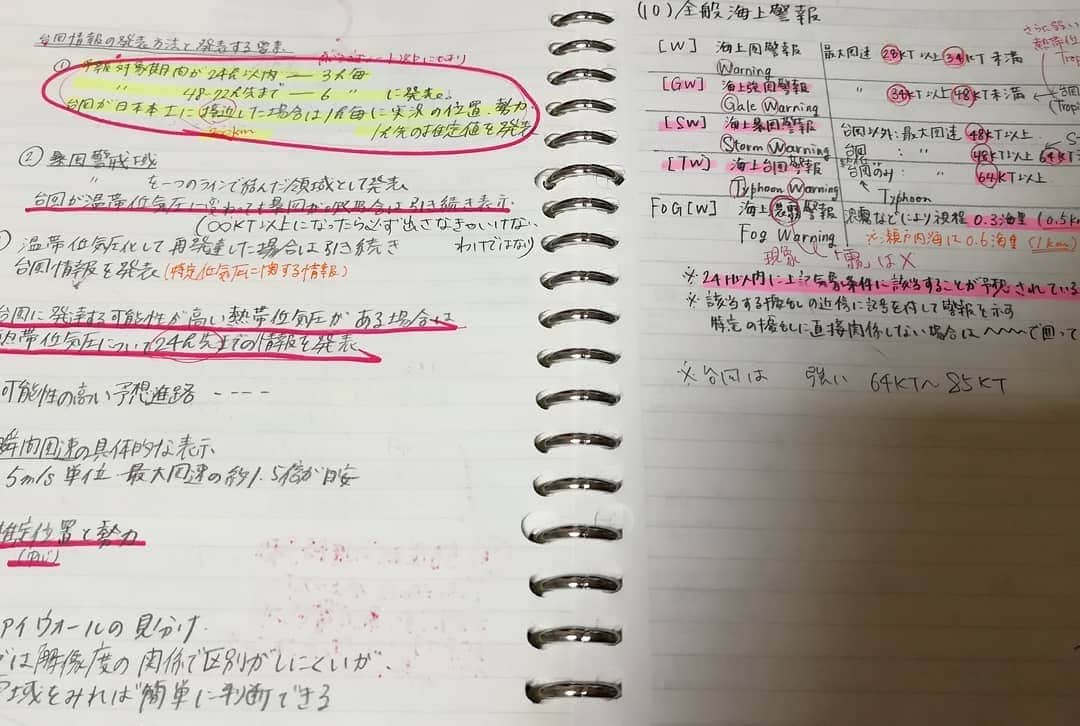 台風情報の発表方法と発表する要素
① 予報対象期間が24h以内 ― 3h毎
〃 48-72h先まで ― 6 〃 に発表。
台風が日本本土に接近した場合は1h毎に実況の位置、勢力、
1h先の推定値を発表
② 暴風警戒域
〃 を一つのラインで結んだ領域として発表
台風が温帯低気圧に変わっても暴風が 場合は引き続き表示
(50KT以上になったら必ず出さなきゃいけない
わけではない)
温帯低気圧化して再発達した場合は引き続き
台風情報を発表 (特定低気圧に関する情報)
台風に発達する可能性が高い熱帯低気圧がある場合は
熱帯低気圧について24h先までの情報を発表
可能性の高い予想進路 ----
瞬間風速の具体的な表示
5m/s 単位 最大風速の約1.5倍が目安
推定位置と勢力
アイウォールの見分け
は解像度の関係で区別がしにくいが、
域をみれば簡単に判断できる
(10) 全般海上警報
[W] 海上風警報 最大風速 28KT以上 34KT未満
Warning
[GW] 海上強風警報 〃 34KT以上 48KT未満
Gale Warning
[SW] 海上暴風警報 台風以外:最大風速 48KT以上
Storm Warning 台風 : 〃 48KT以上 64KT
[TW] 海上台風警報 台風のみ: 〃 64KT以上
Typhoon Warning Typhoon
FOG[W] 海上濃霧警報 濃霧などにより視程 0.3海里 (0.5K
Fog Warning ※瀬戸内海は0.6海里 (1km)
現象 霧は×
※24H以内に上記気象条件に該当することが予想されている
※該当する擾乱の近傍に記号を付して警報を示す
特定の擾乱に直接関係しない場合は〜〜〜で囲って
※台風は 強い 64KT〜85KT